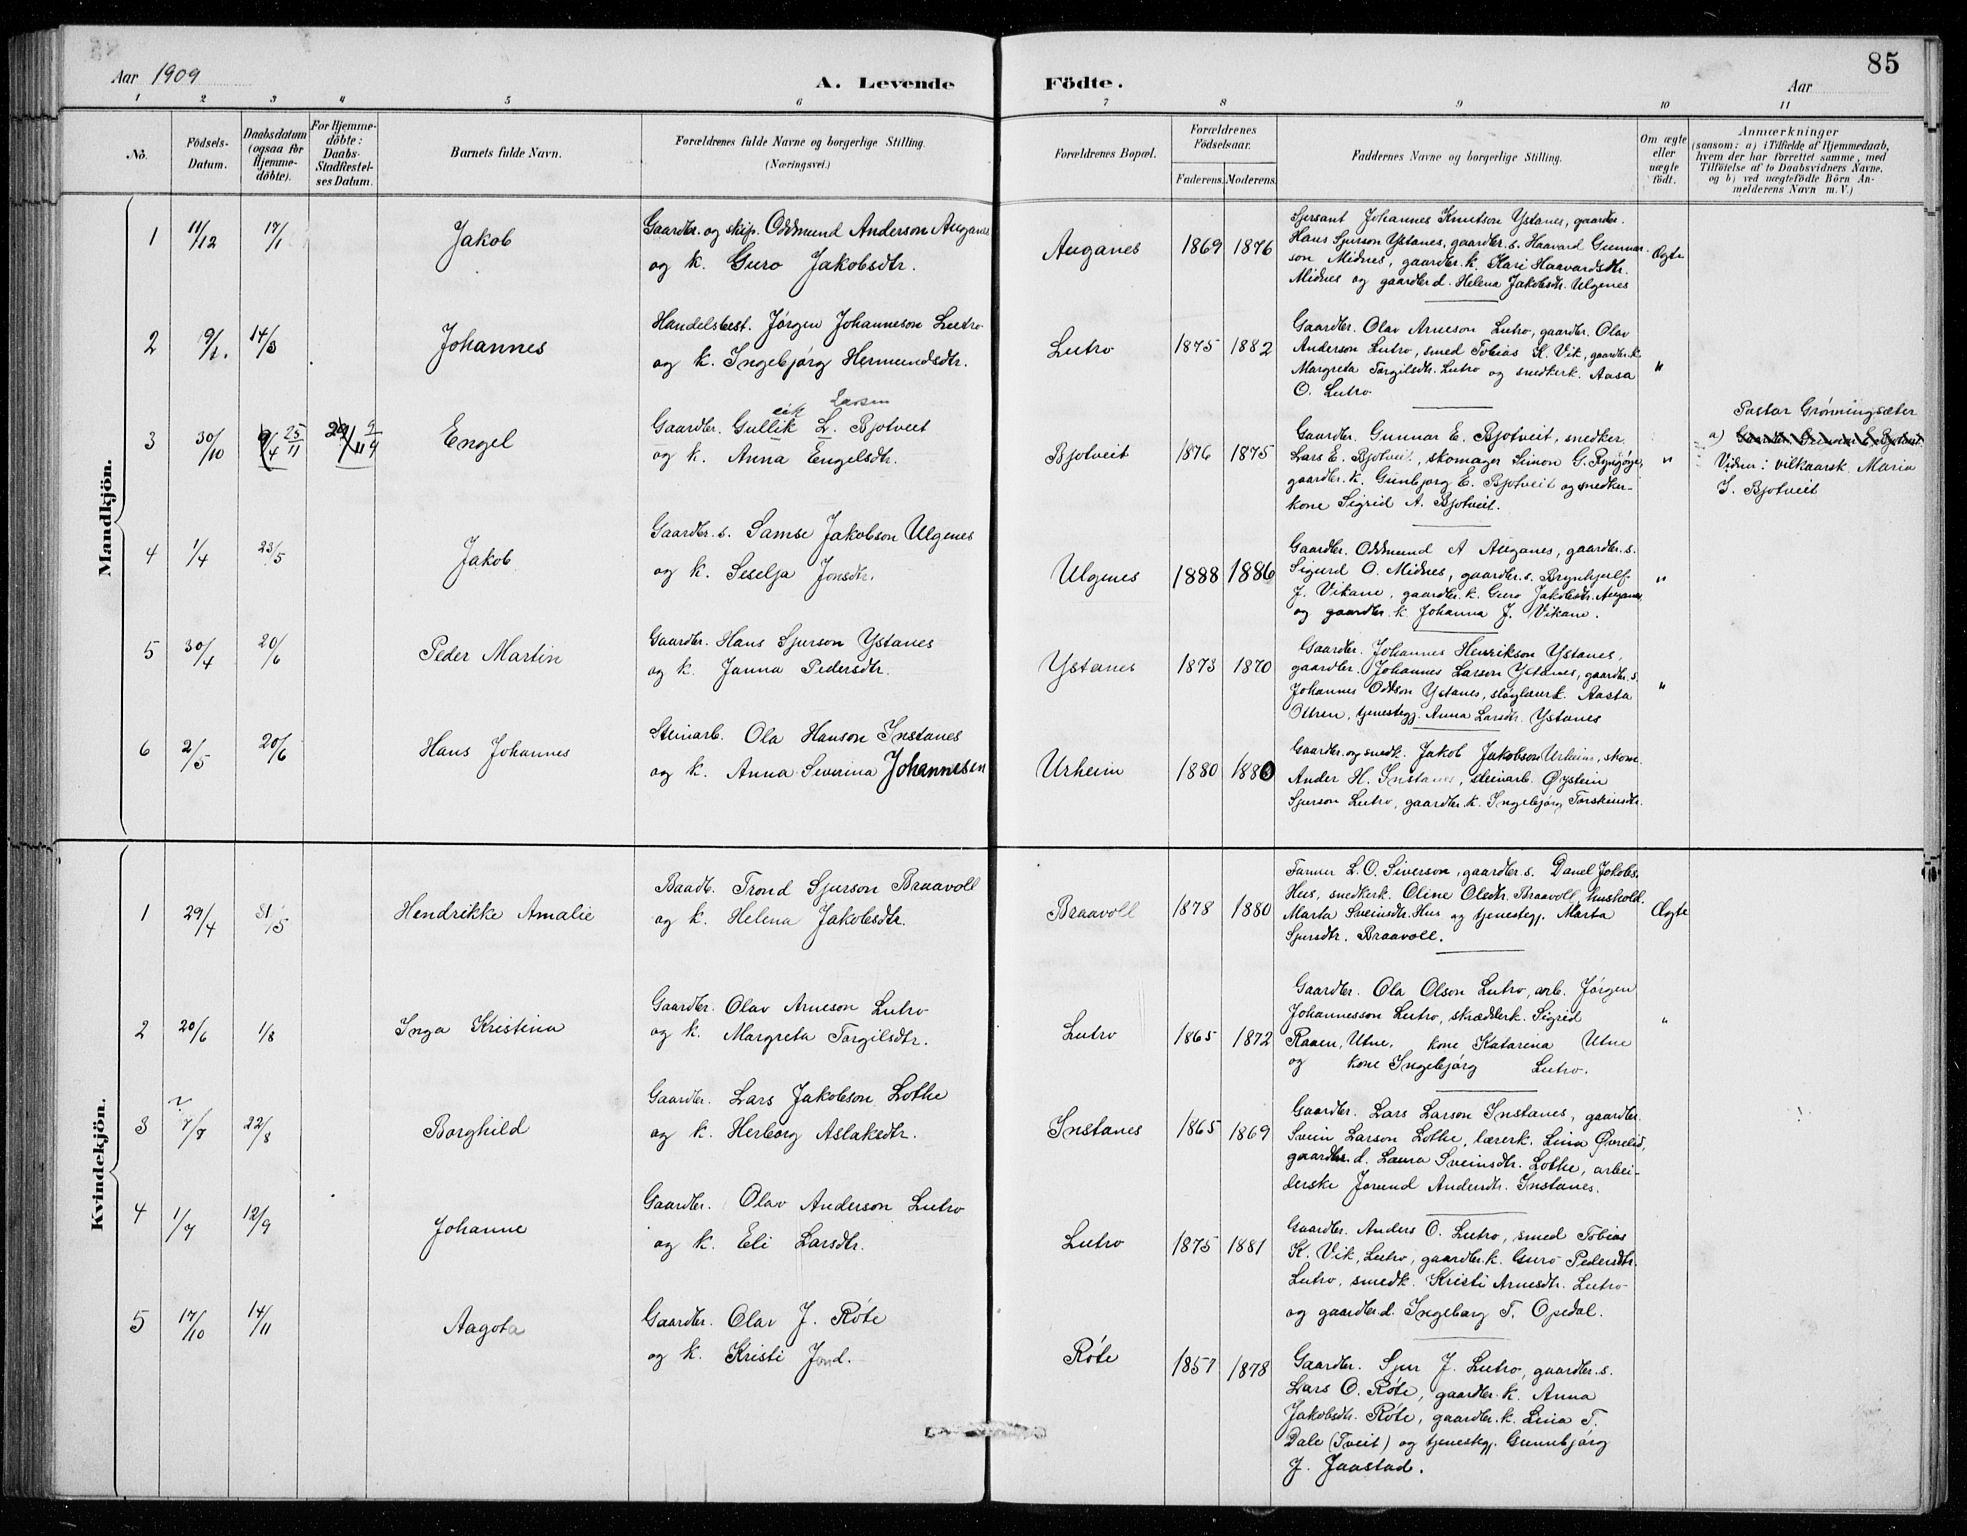 85
Aar 1909
A. Levende Födte.
Aar
1 2 3 4 5 6 7 8 9 10 11
No.
Födsels-Datum.
Daabsdatum (ogsaa for Hjemme-döbte).
For Hjemme-döbte: Daabs-Stadfæstel-ses Datum.
Barnets fulde Navn.
Forældrenes fulde Navne og borgerlige Stilling.
(Næringsvei.)
Forældrenes Bopæl.
Forældrenes Födselsaar.
Faderens. Moderens.
Faddernes Navne og borgerlige Stilling.
Om ægte eller uægte födt.
Anmærkninger
(saasom: a) i Tilfælde af Hjemmedaab,
hvem der har forrettet samme, med
Tilföielse af to Daabsvidners Navne.
og b) ved uægtefödte Börn An-
melderens Navn m. V.)
Mandkjön.
1 11/12 17/1 Jakob
Gaardbr. og skip. Oddmund Anderson Auganes
og k. Guro Jakobsdtr.
Auganes 1869 1876
Sjersant Johannes Knutson Ystanes, gaardbr.
Hans Sjurson Ystanes, gaardbr. s. Haavard Gunnar-
son Midnes, gaardbr. k. Kari Haavardsdtr.
Midnes og gaardbr d. Helena Jakobsdtr. Ulgenes
Ægte
2 9/1. 14/3 Johannes
Handelsbest. Jørgen Johanneson Lutro
og k. Ingebjørg Hermundsdtr.
Lutro 1875 1882
Gaardbr. Olav Arneson Lutro, gaardbr. Olav
Anderson Lutro, smed Tobias K. Vik, gaardbr. k.
Margreta Torgilsdtr. Lutro og smedkerk. Aasa
O. Lutro
"
3 30/10 9/4 25/11 9/4 Engel
eik Larsen
Gaardbr. Gullik L. Bjotveit
og k. Anna Engelsdtr.
Bjotveit 1876 1875
Gaardbr. Gunnar E. Bjotveit, snedker
Lars E. Bjotveit, skomager Simon G.
gaardbr. k. Gunbjorg E. Bjotveit og snedker-
kone Sigrid A. Bjotveit.
"
Pastor Grønningsæter
a) Gaardbr. Gunnar E. Bjotveit
Vidner: vilkaarsk. Maria
I. Bjotveit
4 1/4 23/5 Jakob
Gaardbr. s. Samse Jakobson Ulgenes
og k. Seselja Jonsdtr.
Ulgenes 1888 1886
Gaardbr. Oddmund A Auganes, gaardbr. s.
Sigurd O. Midnes, gaardbr. s. Brynhjulf
J. Vikane, gaardbr. k. Guro Jakobsdtr. Auganes
og gaardbr. k Johanna J. Vikane.
"
5 30/4 20/6 Peder Martin
Gaardbr. Hans Sjurson Ystanes
og k. Janna Pedersdtr.
Ystanes 1873 1870
Gaardbr. Johannes Henrikson Ystanes,
gaardbr. Johannes Larson Ystanes, gaardbr. s.
Johannes Oddson Ystanes, sløjdlærerk. Aasta
Ottren, tjenestegj. Anna Larsdtr. Ystanes
"
6 2/5 20/6 Hans Johannes
Steinarb. Ola Hanson Instanes
og k. Anna Severina Johannesen
Urheim 1880 1880
Gaardbr. og smedk. Jakob Jakobson Urheim, skom.
Ander H. Instanes, steinarb. Øystein
Sjurson Lutro, gaardbr. k. Ingebjørg Torsteinsdtr.
Kvindekjön.
1 29/4 31/5 Hendrikke Amalie
Baadb. Trond Sjurson Braavoll
og k. Helena Jakobsdtr.
Braavoll 1878 1880
Farmer L. O. Siverson, gaardbr. s. Danel Jakobs.
Hus, snedkerk. Oline Olsdtr. Braavoll, hushold.
Marta Sveinsdtr. Hus og tjenestegj. Marta
Sjursdtr. Braavoll.
Ægte
2 20/6 1/8 Inga Kristina
Gaardbr. Olav Arneson Lutro
og k. Margreta Torgilsdtr.
Lutro 1865 1872
Gaardbr. Ola Olson Lutro, arb. Jørgen
Johannesson Lutro, skrædderk. Sigrid
Raaen, Utne, kone Katarina Utne
og kone Ingebjørg Lutro.
"
3 ? 7/7 22/8 Borghild
Gaardbr. Lars Jakobson Lothe
og k. Herborg Aslaksdtr.
Instanes 1865 1869
Gaardbr. Lars Larson Instanes, gaardbr.
Svein Larson Lothe, lærerk. Lina Øvrelid,
gaardbr. d. Laura Sveinsdtr. Lothe, arbei-
derske Jorund Andersdtr. Instanes.
4 1/7 12/9 Johanne
Gaardbr. Olav Anderson Lutro
og k. Eli Larsdtr.
Lutro 1875 1881
Gaardbr. Anders O. Lutro, smed Tobias
K. Vik, Lutro, gaardbr. k. Guro Pedersdtr.
Lutro, smedk. Kristi Arnesdtr. Lutro
og gaardbr. d. Ingeborg T. Opedal.
5 17/10 14/11 Aagota
Gaardbr. Olav J. Røte
og k. Kristi Jond.
Røte 1857 1878
Gaardbr. Sjur J. Lutro, gaardbr. s.
Lars O. Røte, gaardbr. k. Anna
Jakobsdtr. Røte, gaardbr. k. Lina T.
Dale (Tveit) og tjenestegj. Gunnbjørg
J. Jaastad.